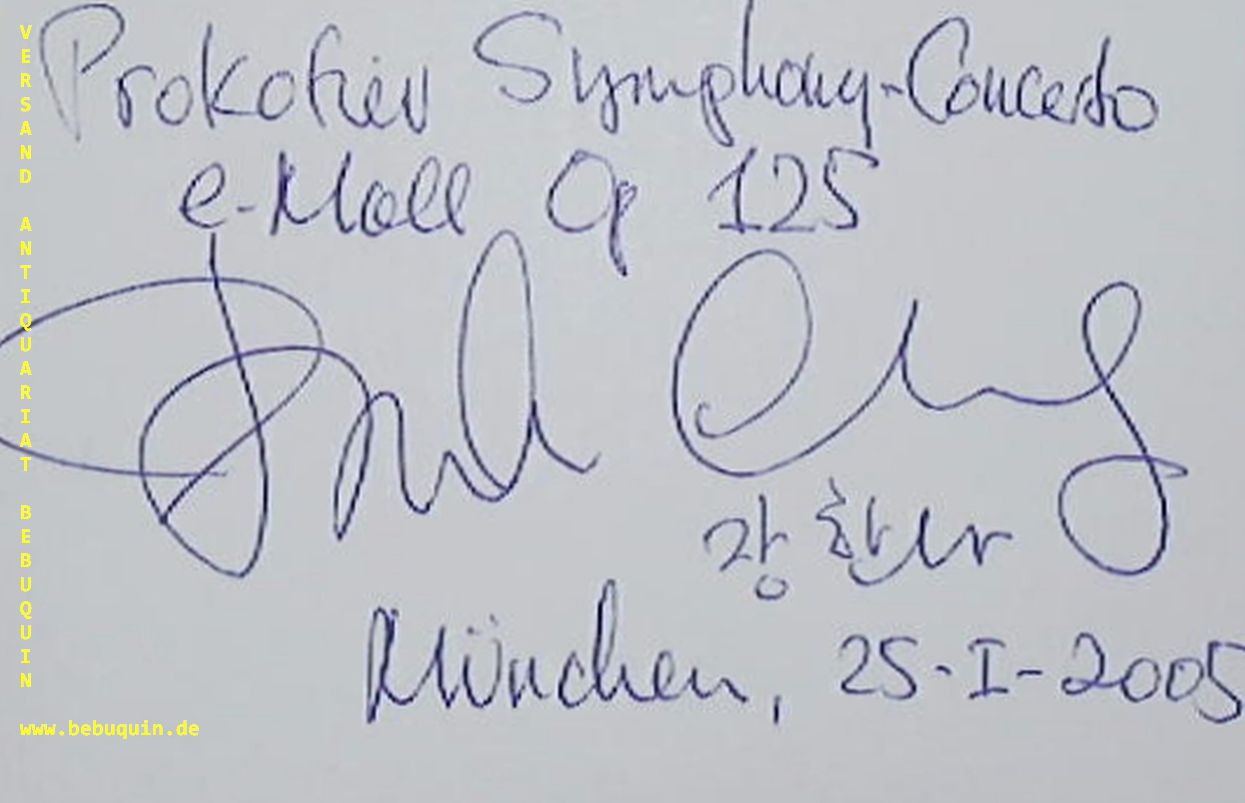 Prokofiev Symphony-Concerto
e-Moll Op 125
장한나
München, 25-I-2005
VERSAND ANTIQUARIAT BEBUQUIN
www.bebuquin.de